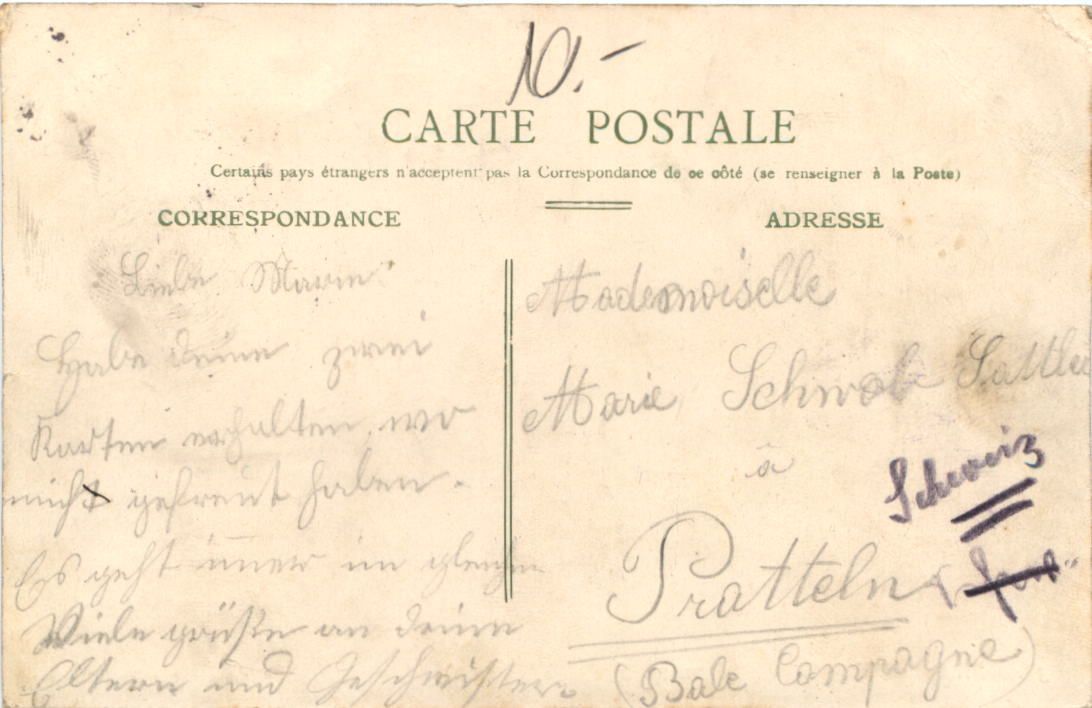 10.-
CARTE POSTALE
Certains pays étrangers n'acceptent pas la Correspondance de ce côté (se renseigner à la Poste)
CORRESPONDANCE
ADRESSE
Liebe Marie
Habe deine zwei
Karten erhalten, wo
mich gefreut haben.
Es geht immer im gleichen
Viele grüße an deine
Eltern und Geschwistern
Mademoiselle
Marie Schwob Sattler
à
Schweiz
Pratteln
(Bale Campagne)